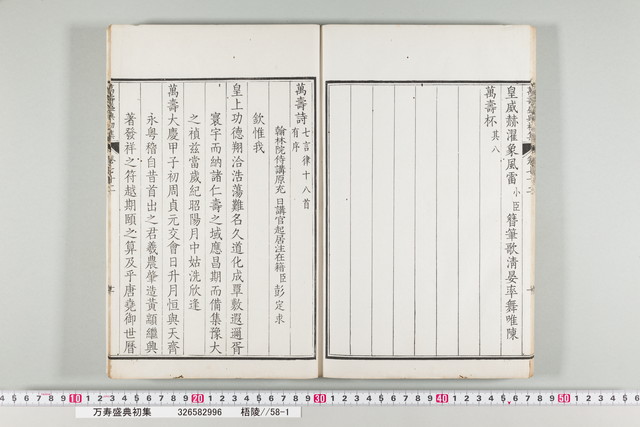 皇威赫濯象風雷小臣簪筆歌清晏率舞唯陳
萬壽杯其八
萬壽詩七言律十八首有序
翰林院侍講原充日講官起居注在籍臣彭定求
欽惟我
皇上功德翔洽浩蕩難名久道化成覃敷遐邇胥
寰宇而納諸仁壽之域應昌期而備集豫大
之禎兹當歲紀昭陽月中姑洗欣逢
萬壽大慶甲子初周貞元交會日升月恒與天齊
永粤稽自昔首出之君羲農肇造黃顓繼興
著發祥之符越期頤之算及乎唐堯御世曆
10 20 30 40 50
万寿盛典初集 326582996 梧陵//58-1